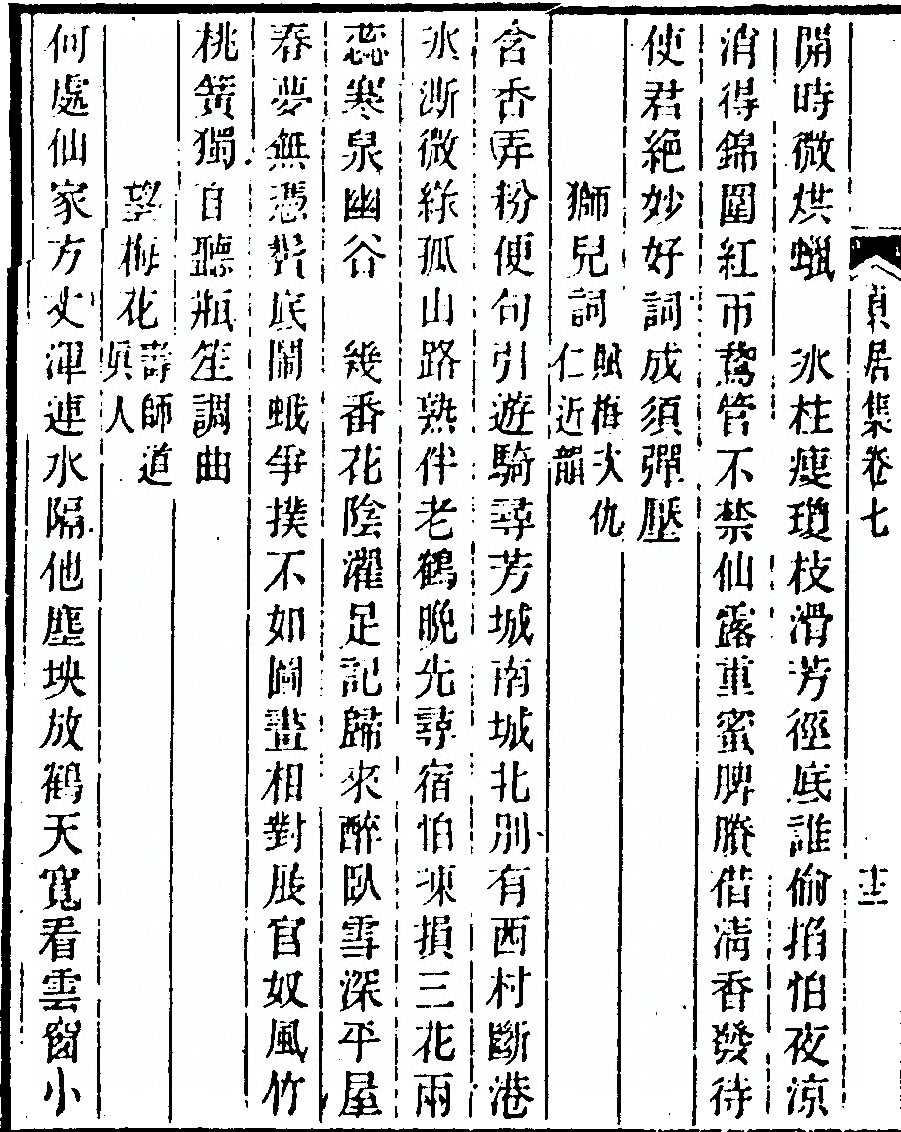 貞居集卷七 十三
開時微烘蠟　冰柱瘦瓊枝滑芳徑底誰偷掐怕夜涼
消得錦圍紅帀鵞管不禁仙露重蜜脾賸借淸香發待
使君絶妙好詞成須彈壓
獅兒詞 賦梅次仇仁近韻
含香弄粉便句引遊騎尋芳城南城北別有西村斷港
冰澌微綠孤山路熟伴老鶴晚先尋宿怕凍損三花兩
蕊寒泉幽谷　幾番花陰濯足記歸來醉臥雪深平屋
春夢無憑鬢底鬧蛾爭撲不如圖畫相對展官奴風竹
桃簧獨自聽瓶笙調曲
望梅花 壽師道眞人
何處仙家方丈渾連水隔他塵坱放鶴天寬看雲窗小